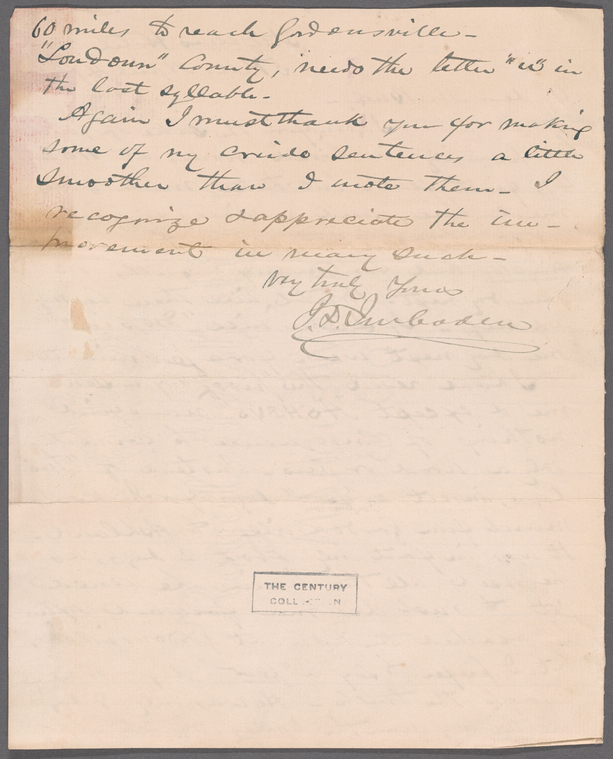 60 miles to reach Gordonsville -
"Loudoun" County, needs the letter "u" in
the last syllable -
Again I must thank you for making
some of my crude sentences a little
smoother than I wrote them - I
recognize & appreciate the im-
provement in many such -
Very truly Yours
J. D. Imboden
THE CENTURY
COLL